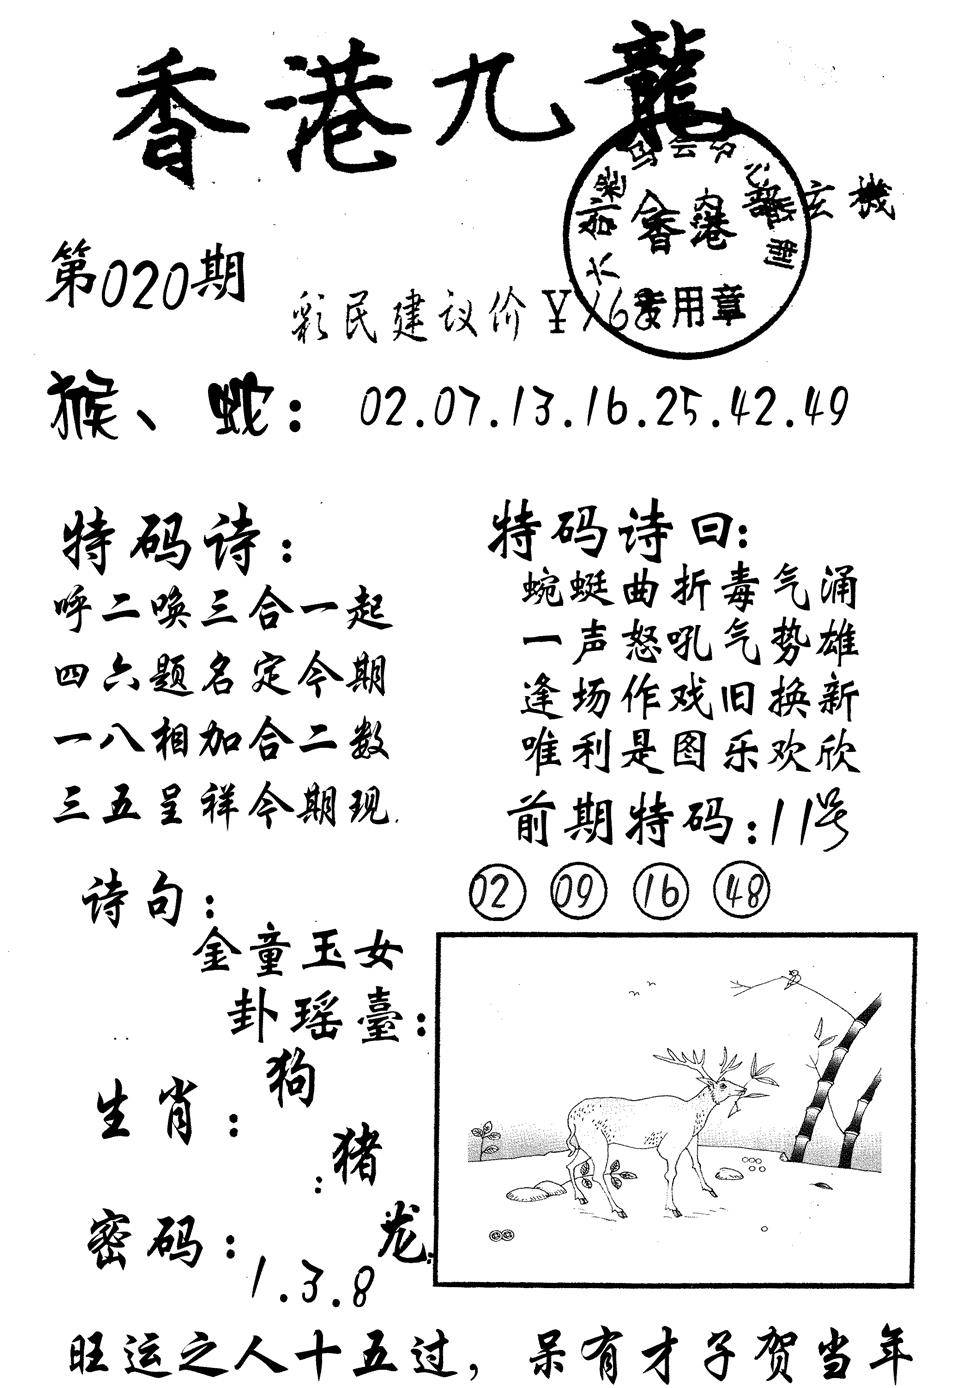 香港九龍
玄機
香港
专用章
第020期
彩民建议价¥168
猴、蛇：02.07.13.16.25.42.49
特码诗：
呼二唤三合一起
四六题名定今期
一八相加合二数
三五呈祥今期现
特码诗曰：
蜿蜓曲折毒气涌
一声怒吼气势雄
逢场作戏旧换新
唯利是图乐欢欣
前期特码：11号
02 09 16 48
诗句：
金童玉女
卦瑶臺：
生肖：狗
猪
龙
密码：1.3.8
旺运之人十五过，呆有才子贺当年